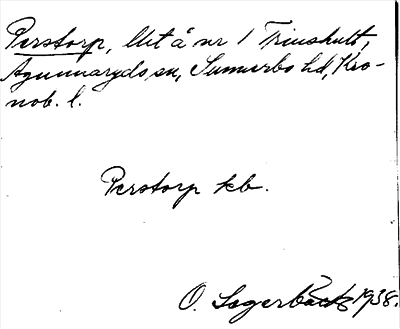 Perstorp, lht å nr 1 Trinshult,
Agunnaryds sn, Sunnerbo hd, Kro-
nob. l.
Perstorp kb.
O. Sagerbäck 1938.